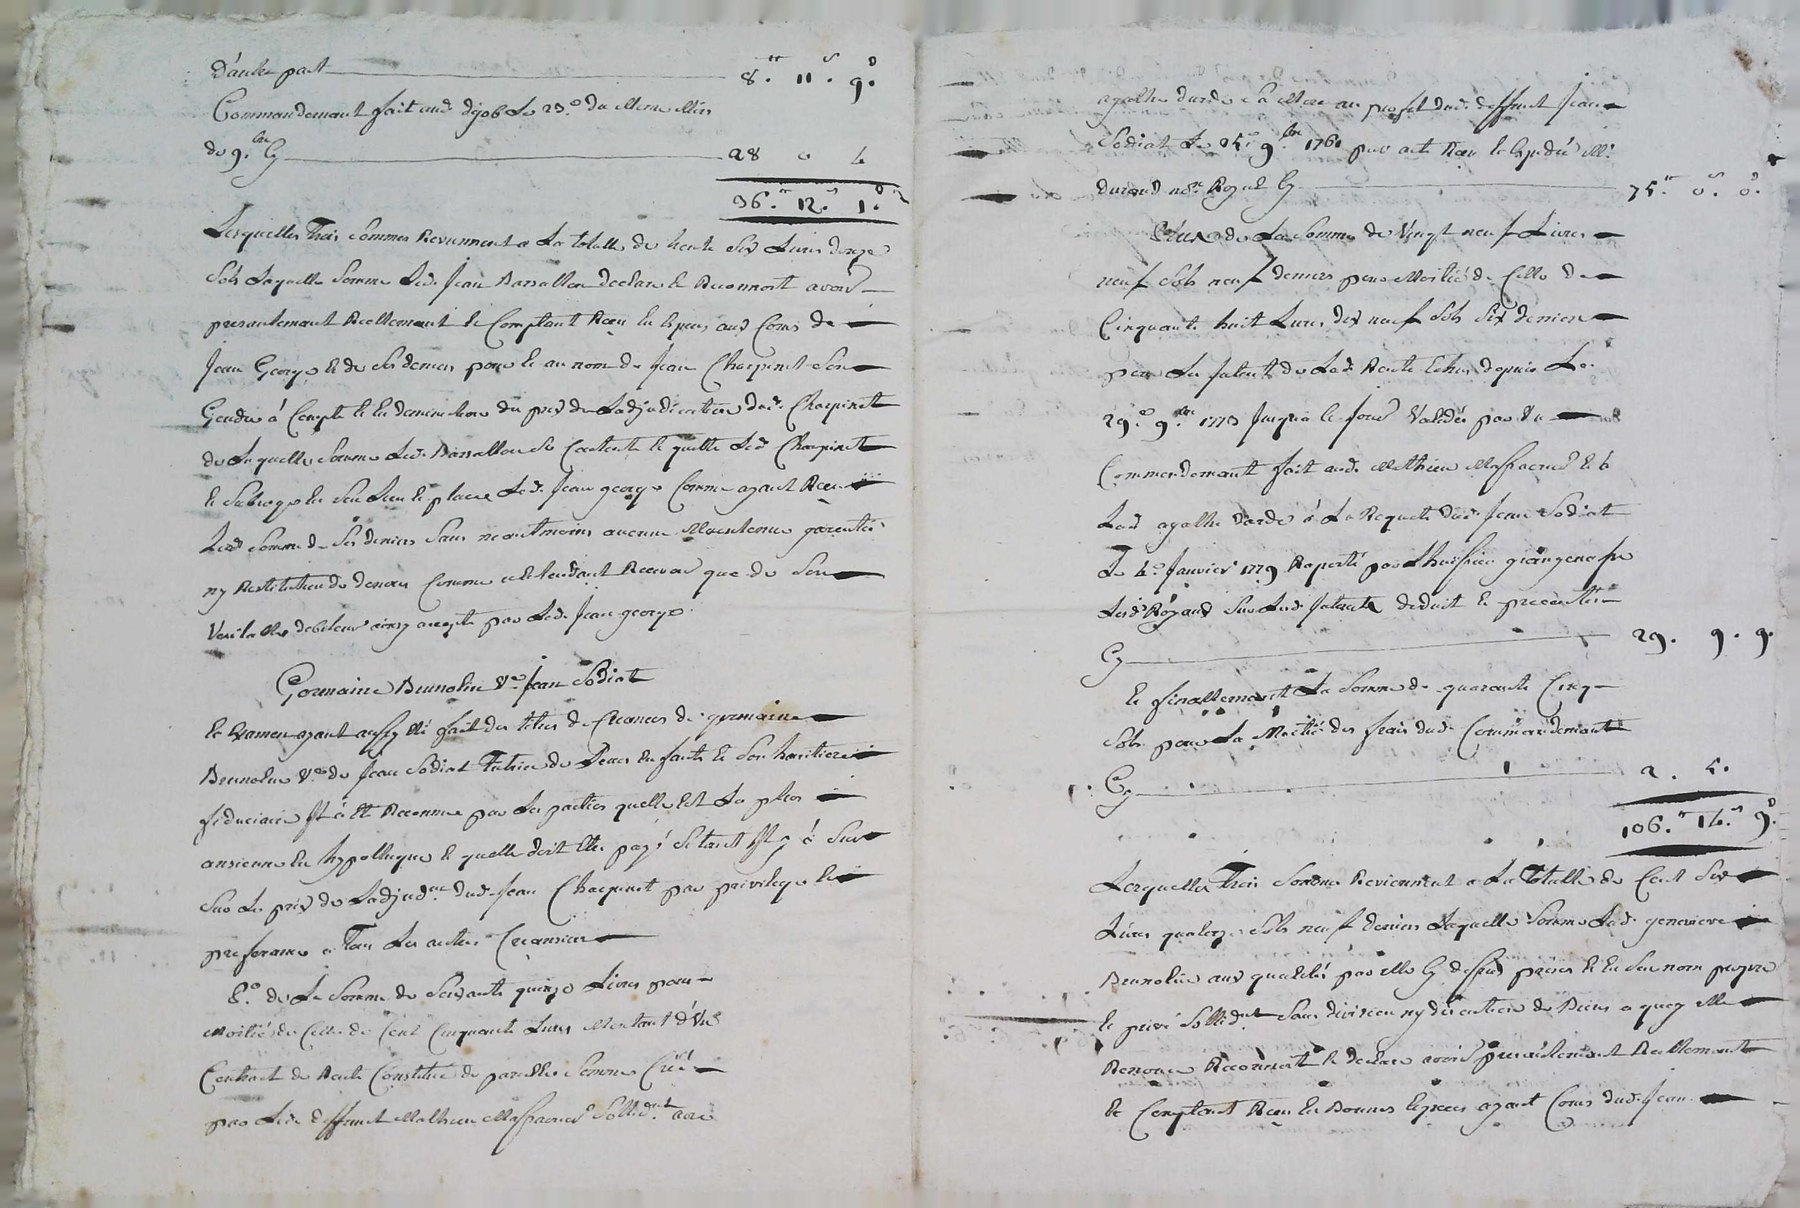 D'autre part 8.# 11.s 9.d
Commandement fait aud. le 23.e du meme mois
de 9.bre Cy 28 0 4
36.# 12.s 1.d
Lesquelles trois sommes Reviennent a La totalle de trente six Livres douze
sols Laquelle somme Led. Jean Barsallon declare et Reconnoit avoir
presentement Reellement et Comptant Receu en especes aux Cours de
Jean George et de ses deniers pour et au nom de Jean Charpinet son
Gendre à Compte et en deminution du prix de Ladjudication dud. Charpinet
de Laquelle somme Led. Barsallon se Contente et quitte Led. Charpinet
et subroge en son Lieu et place Led. Jean george Comme ayant Receu
Lad. somme de ses deniers sans neantmoins aucune Maintenue garentie
ny Restitution de deniers Comme nentendant Recevoir que de son
Veritable debiteur ainsy accepté par Led. Jean george
Germaine Brunelin V.e Jean Sodiat
Et Examen ayant aussy été fait des titres de Creances de germaine
Brunelin V.e de Jean Sodiat Tutrice de Leurs Enfants et son heritiere
fiduciaire Il a été Reconnu par Les parties quelle est La plus
ansienne en hypotheque et quelle doit etre payé si tant Est à
sur Le prix de Ladjud.on dud. Jean Charpinet par privilege et
preferance a Tous Les autres Creansiers
1.o de La somme de soixante quinze Livres pour
Moitié de Celle de Cent Cinquante Livres Montant d'Un
Contract de Rente Constitué de pareille somme Créé
par Led. deffunt Mathieu Masfraned sollid.nt avec
agathe darde sa Mere au profit dud. deffunt Jean
Sodiat Le 25.e 9.bre 1761 par acte Receu et Expedié M.e
durand no.re Royal Cy 75.# 0.s 0.d
Plus de La somme de Vingt neuf Livres
neuf sols neuf deniers pour Moitié de Celle de
Cinquante huit Livres dix neuf sols six deniers
pour Les Interets de Lad. Rente Echus depuis Le
29.e 9.bre 1773 Jusqua ce Jour Validés par Un
Commandement fait aud. Mathieu Masfraned et à
Lad. agathe darde à La Requete dud. Jean Sodiat
Le 4.e Janvier 1779 Raporté par Lhuissier
Cy 29. 9. 9.
Et finallement La somme de quarante Cinq
sols pour La Moitié des frais dud. Commandement
Cy 2. 5.
106.# 14.s 9.d
Lesquelles Trois sommes Reviennent a La Totalle de Cent six
Livres quatorze sols neuf deniers Laquelle somme Lad. genevieve
Brunelin aux qualités par elle Cy dessus prises et En son nom propre
et privé sollid.nt sans division ny discution de Biens a quoy elle
Renonce Reconnoit et declare avoir presentement Reellement
et Comptant Receu En Bonnes Especes ayant Cours dud. Jean